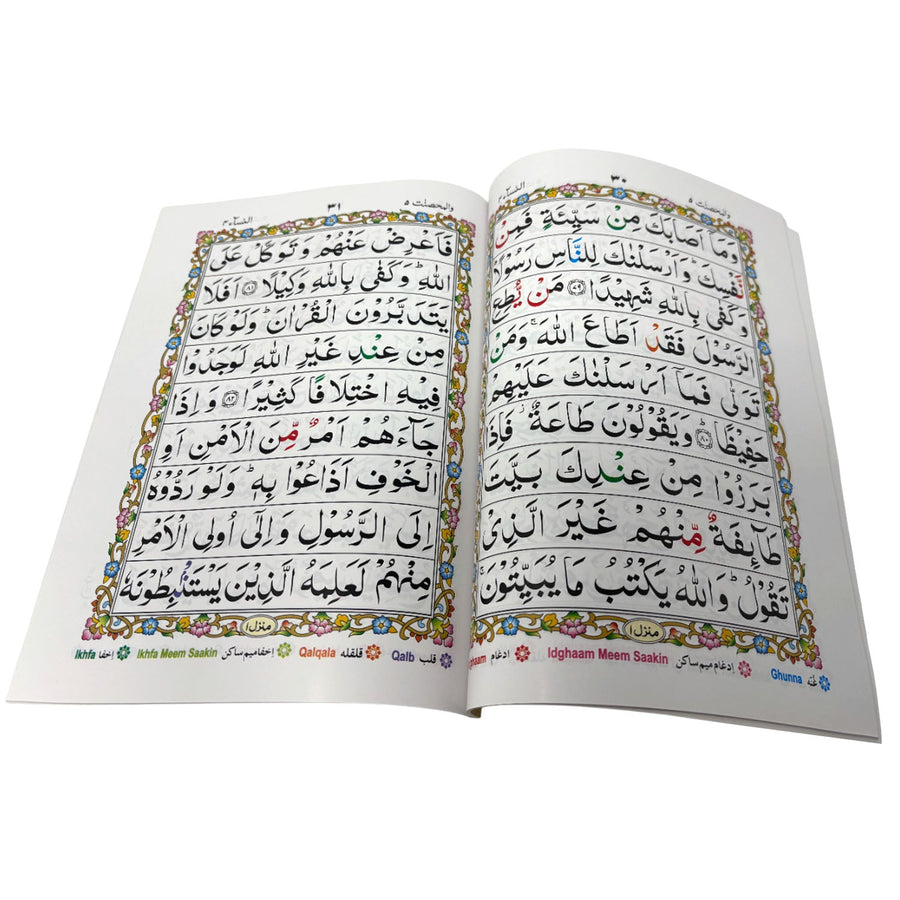 والمحصنت ٥
٣٠
النسآء ٤
وَمَآ اَصَابَكَ مِنْ سَيِّئَةٍ فَمِنْ
نَّفْسِكَ ؕ وَاَرْسَلْنٰكَ لِلنَّاسِ رَسُوْلًا ؕ
وَكَفٰى بِاللّٰهِ شَهِيْدًا ﴿٧٩﴾ مَنْ يُّطِعِ
الرَّسُوْلَ فَقَدْ اَطَاعَ اللّٰهَ ۚ وَمَنْ
تَوَلّٰى فَمَآ اَرْسَلْنٰكَ عَلَيْهِمْ
حَفِيْظًا ﴿٨٠﴾ ؕ وَيَقُوْلُوْنَ طَاعَةٌ ۫ فَاِذَا
بَرَزُوْا مِنْ عِنْدِكَ بَيَّتَ
طَآئِفَةٌ مِّنْهُمْ غَيْرَ الَّذِيْ
تَقُوْلُ ؕ وَاللّٰهُ يَكْتُبُ مَا يُبَيِّتُوْنَ ۚ
منزل ١
Ghunna غنّه
Idghaam Meem Saakin ادغام ميم ساكن
ادغام
والمحصنت ٥
٣١
النسآء ٤
فَاَعْرِضْ عَنْهُمْ وَتَوَكَّلْ عَلَى
اللّٰهِ ؕ وَكَفٰى بِاللّٰهِ وَكِيْلًا ﴿٨١﴾ اَفَلَا
يَتَدَبَّرُوْنَ الْقُرْاٰنَ ؕ وَلَوْ كَانَ
مِنْ عِنْدِ غَيْرِ اللّٰهِ لَوَجَدُوْا
فِيْهِ اخْتِلَافًا كَثِيْرًا ﴿٨٢﴾ وَاِذَا
جَآءَهُمْ اَمْرٌ مِّنَ الْاَمْنِ اَوِ
الْخَوْفِ اَذَاعُوْا بِهٖ ؕ وَلَوْ رَدُّوْهُ
اِلَى الرَّسُوْلِ وَاِلٰٓى اُولِى الْاَمْرِ
مِنْهُمْ لَعَلِمَهُ الَّذِيْنَ يَسْتَنْۢبِطُوْنَهٗ
منزل ١
Qalb قلب
Qalqala قلقله
Ikhfa Meem Saakin إخفا ميم ساكن
Ikhfa إخفا